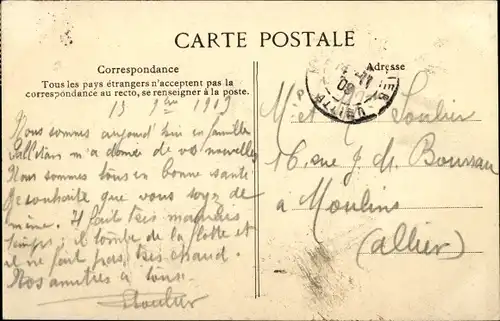 CARTE POSTALE
Correspondance
Adresse
Tous les pays étrangers n'acceptent pas la
correspondance au recto, se renseigner à la poste.
1909
Nous sommes aujourd'hui en famille
m'a donner de vos nouvelles
Nous sommes tous en bonne santé
Je souhaite que vous soyez de
même. Il fait très mauvais
temps, il tombe de la flotte et
il ne fait pas très chaud.
Nos amitiés à tous.
Soulier
M et M Soulier
16, rue J. Bte
a Moulins
(allier)